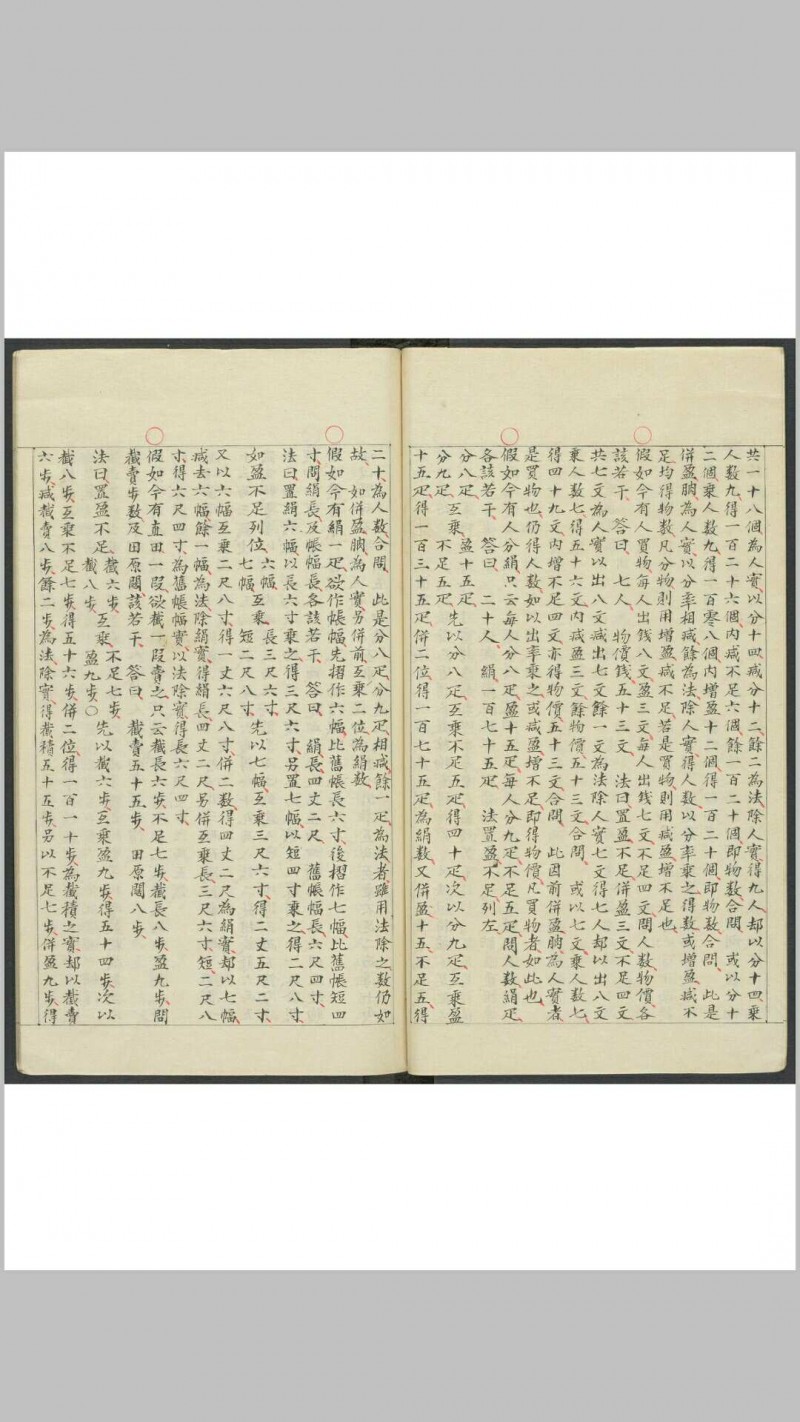 共一十八個為人實以分十四減分十二餘二為法除人實得九人却以分十四乘
人數九得一百二十六個內減不足六個餘一百二十個即物數合問　或以分十
二個乘人數九得一百零八個內增盈十二個得一百二十個即物數合問　此是
併盈朒為人實以分率相減餘為法除人實得人數以分率乘之得數或增盈減不
足均得物數凡分物則用增盈減不足若是買物則用減盈增不足也
假如今有人買物每人出錢八文盈三文每人出錢七文不足四文問人數物價各
該若干　答曰　七人　物價錢五十三文　法曰置盈不足併盈三文不足四文
共七文為人實以出八文減出七文餘一文為法除人實七文得七人却以出八文
乘人數七得五十六文內減盈三文餘物價五十三文合問　或以七文乘人數七
得四十九文內增不足四文亦得物價五十三文合問　此因前併盈朒為人實者
是買物也仍得人數如以出率乘之或減盈增不足即得物價凡買物者如此也
假如今有人分絹只云每人分八疋盈十五疋每人分九疋不足五疋問人數絹疋
各該若干　答曰　二十人　絹一百七十五疋　法置盈不足列左
分八疋　盈十五疋
互乘　先以分八疋互乘不足五疋得四十疋次以分九疋互乘盈
分九疋　不足五疋
十五疋得一百三十五疋併二位得一百七十五疋為絹數又併盈十五不足五得
二十為人數合問　此是分八疋分九疋相減餘一疋為法者雖用法除之數仍如
故　如併盈朒為人實另併前互乘二位為絹數
假如今有絹一疋欲作帳幅先摺作六幅比舊帳長六寸後摺作七幅比舊帳短四
寸問絹長及帳幅長各該若干　答曰　絹長四丈二尺　舊帳幅長六尺四寸
法曰置絹六幅以長六寸乘之得三尺六寸另置七幅以短四寸乘之得二尺八寸
如盈不足列位　六幅　長三尺六寸
互乘　先以七幅互乘三尺六寸得二丈五尺二寸
七幅　短二尺八寸
又以六幅互乘二尺八寸得一丈六尺八寸併二數得四丈二尺為絹實却以七幅
減去六幅餘一幅為法除絹實得絹長四丈二尺另併互乘長三尺六寸短二尺八
寸得六尺四寸為舊帳幅實以法除實得長六尺四寸
假如今有直田一段欲截一段賣之只云截長六步不足七步截長八步盈九步問
截賣步數及田原闊該若干　答曰　截賣五十五步　田原闊八步
法曰置盈不足　截六步　不足七步
互乘　先以截六步互乘盈九步得五十四步次以
截八步　盈九步〇
截八步互乘不足七步得五十六步併二位得一百一十步為截積之實却以截賣
六步減截賣八步餘二步為法除實得截積五十五步另以不足七步併盈九步得